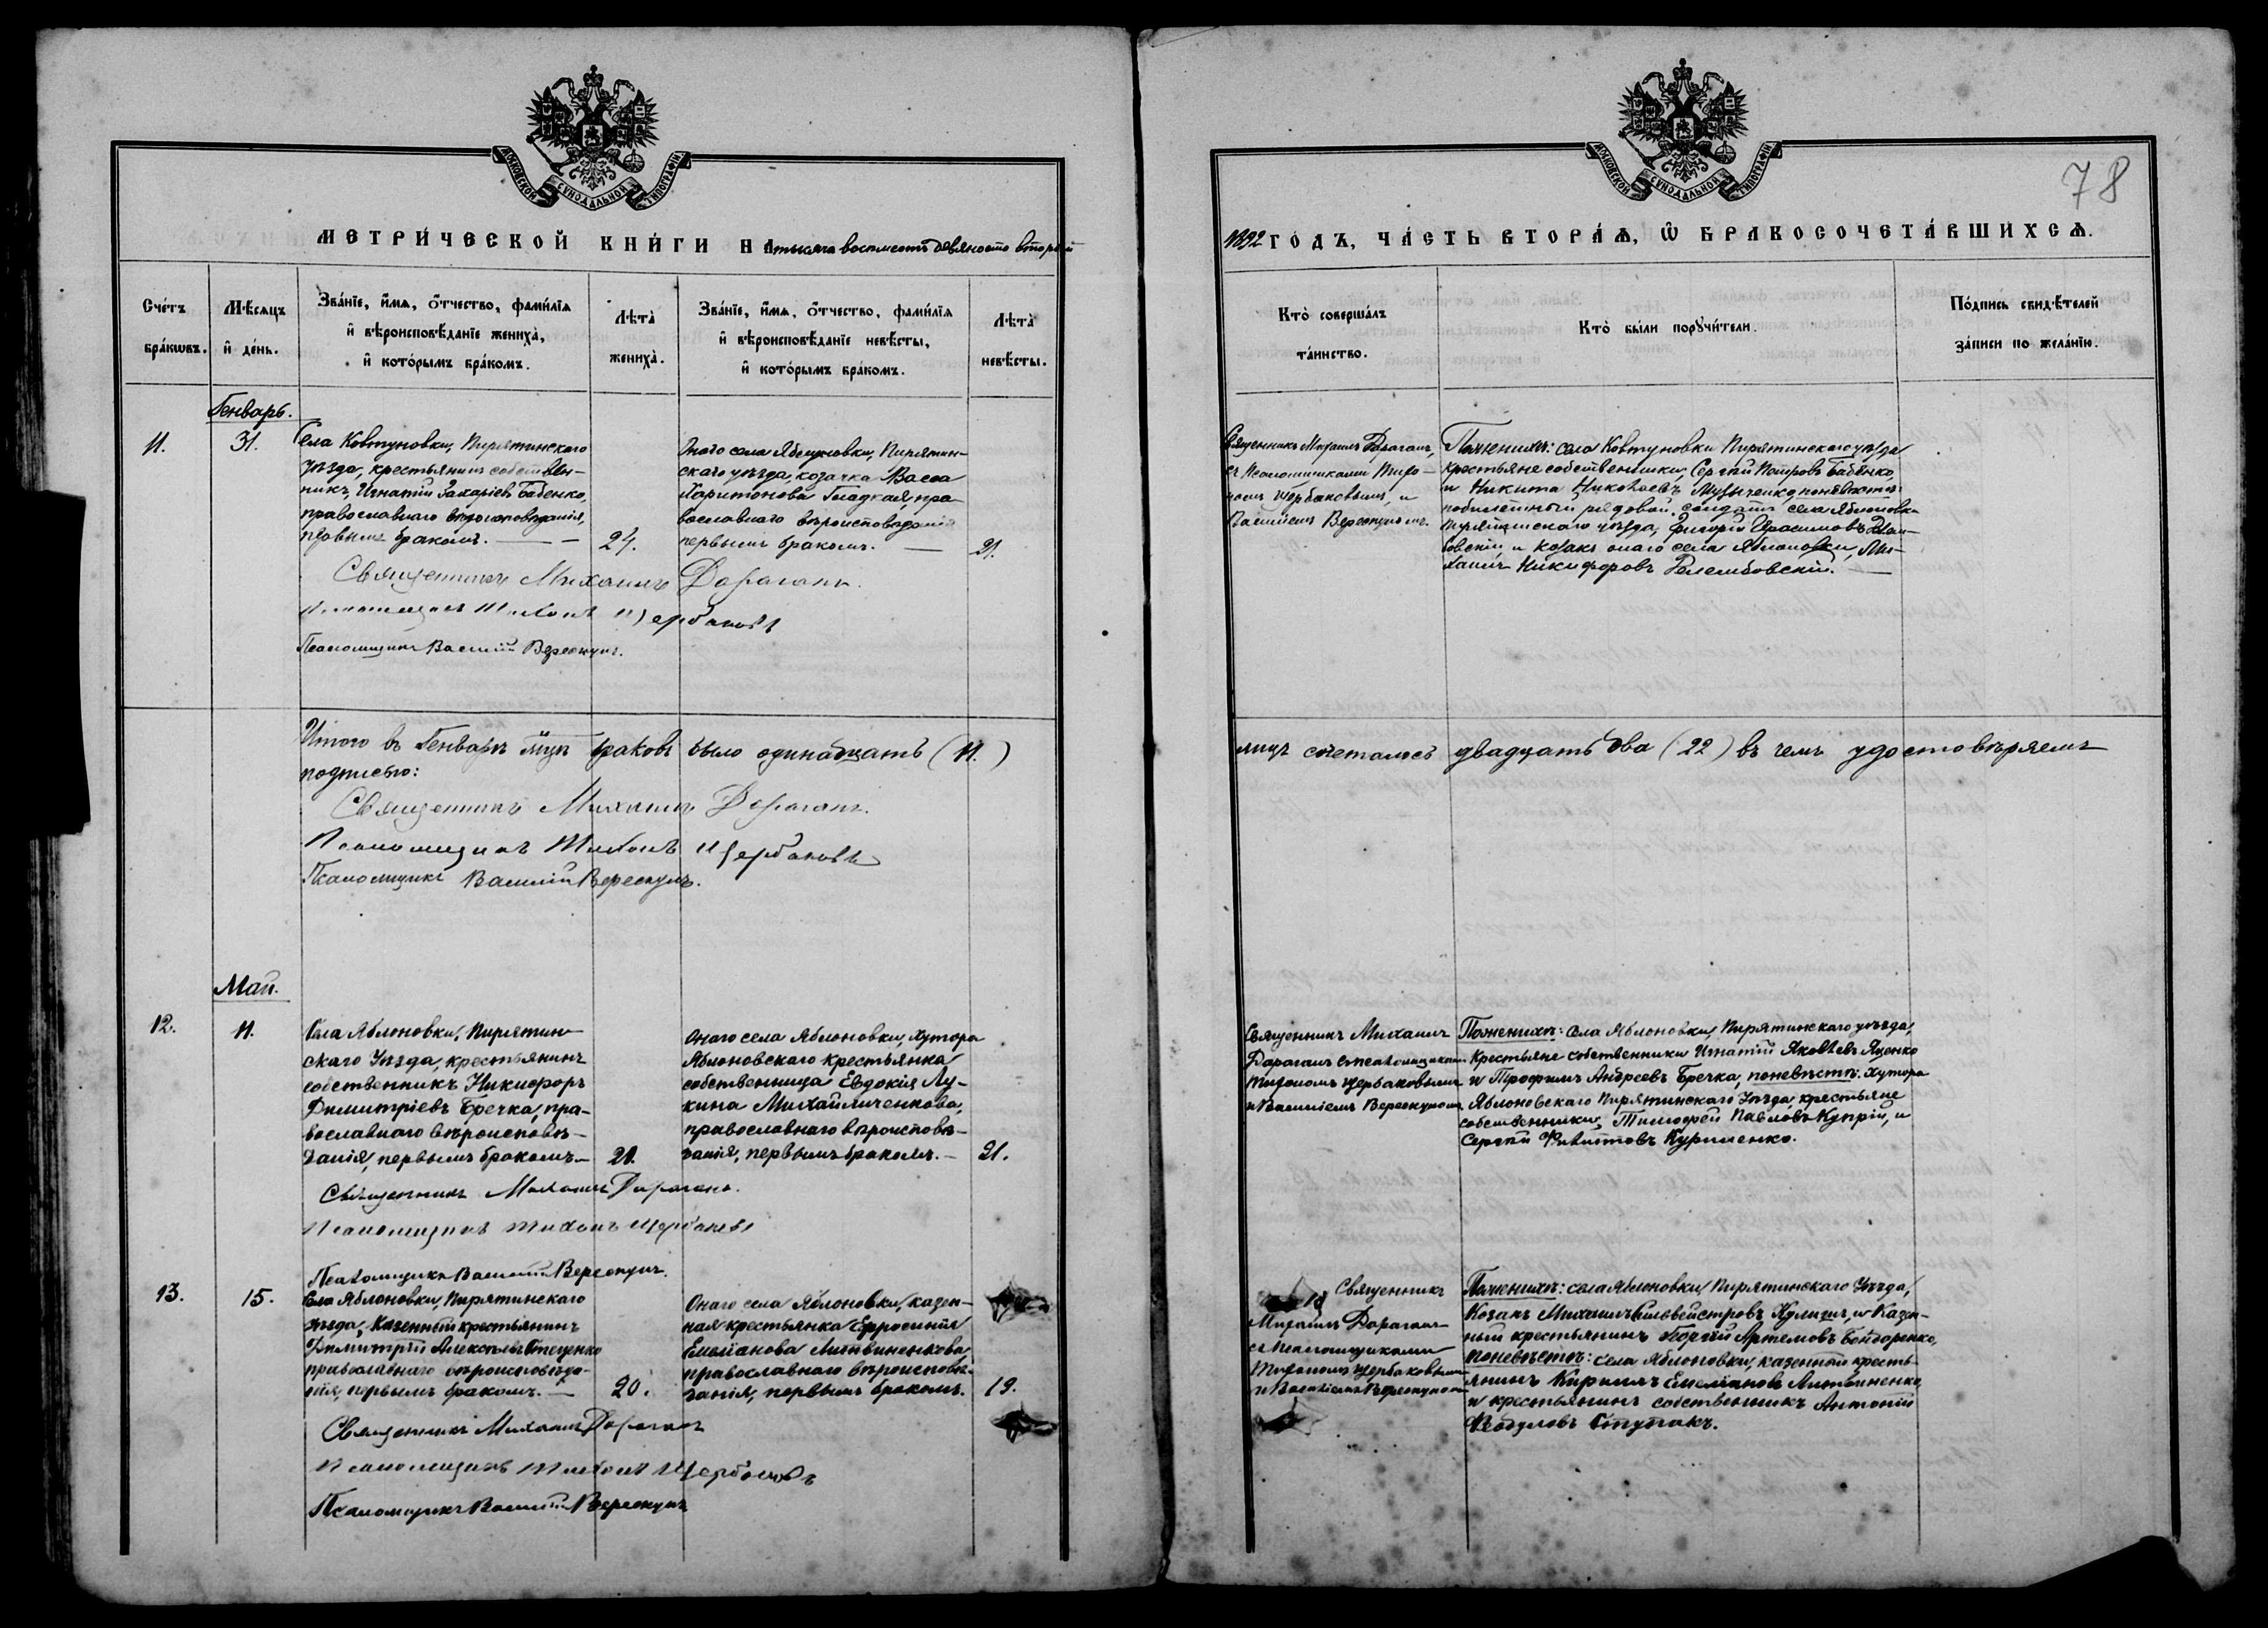 МОСКОВСКОЙ СѴНОДАЛЬНОЙ ТИПОГРАФІИ
МЕТРИ́ЧЕСКОЙ КНИ́ГИ НА тысяча восемьсотъ девяносто второй
Сче́тъ бра́кωвъ.
Мѣ́сяцъ и҆ де́нь.
Зва́нїе, и҆́мѧ, ѻ҆́тчество, фами́лїѧ
и҆ вѣроисповѣ́данїе жениха̀,
и҆ кото́рымъ бра́комъ.
Лѣ́та̀
жениха̀.
Зва́нїе, и҆́мѧ, ѻ҆́тчество, фами́лїѧ
и҆ вѣроисповѣ́данїе невѣ́сты,
и҆ кото́рымъ бра́комъ.
Лѣ́та̀
невѣ́сты.
Генварь.
11.
31.
Села Ковтуновки, Пирятинскаго
уѣзда, крестьянинъ собствен-
никъ, Игнатій Захаріевъ Бабенко,
православнаго вѣроисповѣданія,
первымъ бракомъ. —
24.
Онаго села Яблуновки, Пирятин-
скаго уѣзда, козачка Васса
Харитонова Гладкая, пра-
вославнаго вѣроисповѣданія
первымъ бракомъ. —
21.
Священникъ Михаилъ Дараганъ.
Псаломщикъ Тихонъ Щербаковъ
Псаломщикъ Василій Верескунъ.
Итого въ Генварѣ мцѣ браковъ было одинадцать (11.)
подписью:
Священникъ Михаилъ Дараганъ.
Псаломщикъ Тихонъ Щербаковъ
Псаломщикъ Василій Верескунъ.
Май.
12.
11.
Села Яблоновки, Пирятин-
скаго Уѣзда, крестьянинъ
собственникъ Никифоръ
Димитріевъ Бречка, пра-
вославнаго вѣроисповѣ-
данія, первымъ бракомъ.—
21.
Онаго села Яблоновки, Хутора
Яблоновскаго крестьянка
собственница Евдокія Лу-
кина Михайличенкова,
православнаго вѣроисповѣ-
данія, первымъ бракомъ. —
21.
Священникъ Михаилъ Дараганъ.
Псаломщикъ Тихонъ Щербаковъ
Псаломщикъ Василій Верескунъ.
13.
15.
Села Яблоновки, Пирятинскаго
уѣзда, Казенный крестьянинъ
Димитрій Алексѣевъ Стеценко
православнаго вѣроисповѣда-
нія, первымъ бракомъ. —
20.
Онаго села Яблоновки, казен-
ная крестьянка Ефросинія
Емеліанова Литвиненкова,
православнаго вѣроисповѣ-
данія, первымъ бракомъ.
19.
Священникъ Михаилъ Дараганъ
Псаломщикъ Тихонъ Щербаковъ
Псаломщикъ Василій Верескунъ
МОСКОВСКОЙ СѴНОДАЛЬНОЙ ТИПОГРАФІИ
78
1892 ГО́ДЪ, ЧА́СТЬ ВТОРА́Ѧ, Ѡ҆ БРАКОСОЧЕТА́ВШИХСѦ.
Кто̀ соверша́лъ
та́инство.
Кто̀ бы́ли порꙋчи́тели.
По́дпись свидѣ́телей
за́писи по жела́нїю.
Священникъ Михаилъ Дараганъ,
съ Псаломщиками Тихо-
номъ Щербаковымъ, и
Василіемъ Верескуномъ.
По женихѣ: села Ковтуновки Пирятинскаго уѣзда
крестьяне собственники, Сергѣй Петровъ Бабенко,
и Никита Николаевъ Музыченко, по невѣстѣ:
побилетный рядовой солдатъ села Яблоновки
Пирятинскаго уѣзда, Григорій Герасимовъ
и козакъ онаго села Яблоновки, Ми-
хаилъ Никифоровъ Релембовскій. —
лицъ сочеталось двадцать два (22) въ чемъ удостовѣряемъ
Священникъ Михаилъ
Дараганъ съ псаломщиками
Тихономъ Щербаковымъ
и Василіемъ Верескуномъ.
По женихѣ: села Яблоновки, Пирятинскаго уѣзда,
Крестьяне собственники Игнатій Яковлевъ Яценко
и Трофимъ Андреевъ Бречка, по невѣстѣ: хутора
Яблоновскаго Пирятинскаго Уѣзда, крестьяне
собственники, Тимофей Павловъ Купрій, и
Сергѣй Филиповъ Куриленко.
Священникъ
Михаилъ Дараганъ
съ Псаломщиками
Тихономъ Щербаковымъ
и Василіемъ Верескуномъ
По женихѣ: села Яблоновки, Пирятинскаго Уѣзда,
Козакъ Михаилъ Сильвестровъ Кулишъ, и Казен-
ный крестьянинъ Георгій Артемовъ Бондаренко,
по невѣстѣ: села Яблоновки, казенный кресть-
янинъ Кириллъ Емеліановъ Литвиненко,
и крестьянинъ собственникъ Антоній
Ѳеодуловъ Ступакъ.